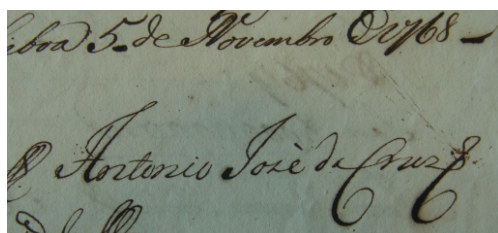 Lisboa 5 de Novembro de 1768
Antonio José da Cruz